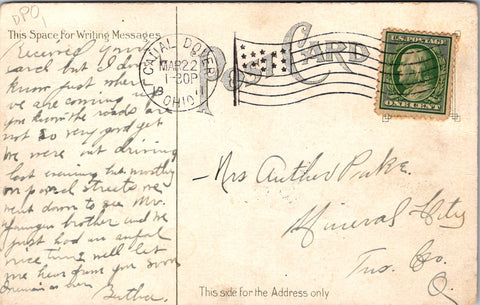 DPO,
This Space for Writing Messages
Received your
card but I don't
know just when
we are coming
you know the roads are
not so very good yet
we were out driving
last evening but mostly
on paved streets we
went down to see Mr.
Younger brother and we
just had an awful
nice time, well let
me hear from you soon
CANAL DOVER
MAR 22
1-30P
OHIO
POST CARD
ONE CENT
Mrs Author Parke
Mineral City
Tus. Co.
O.
This side for the Address only